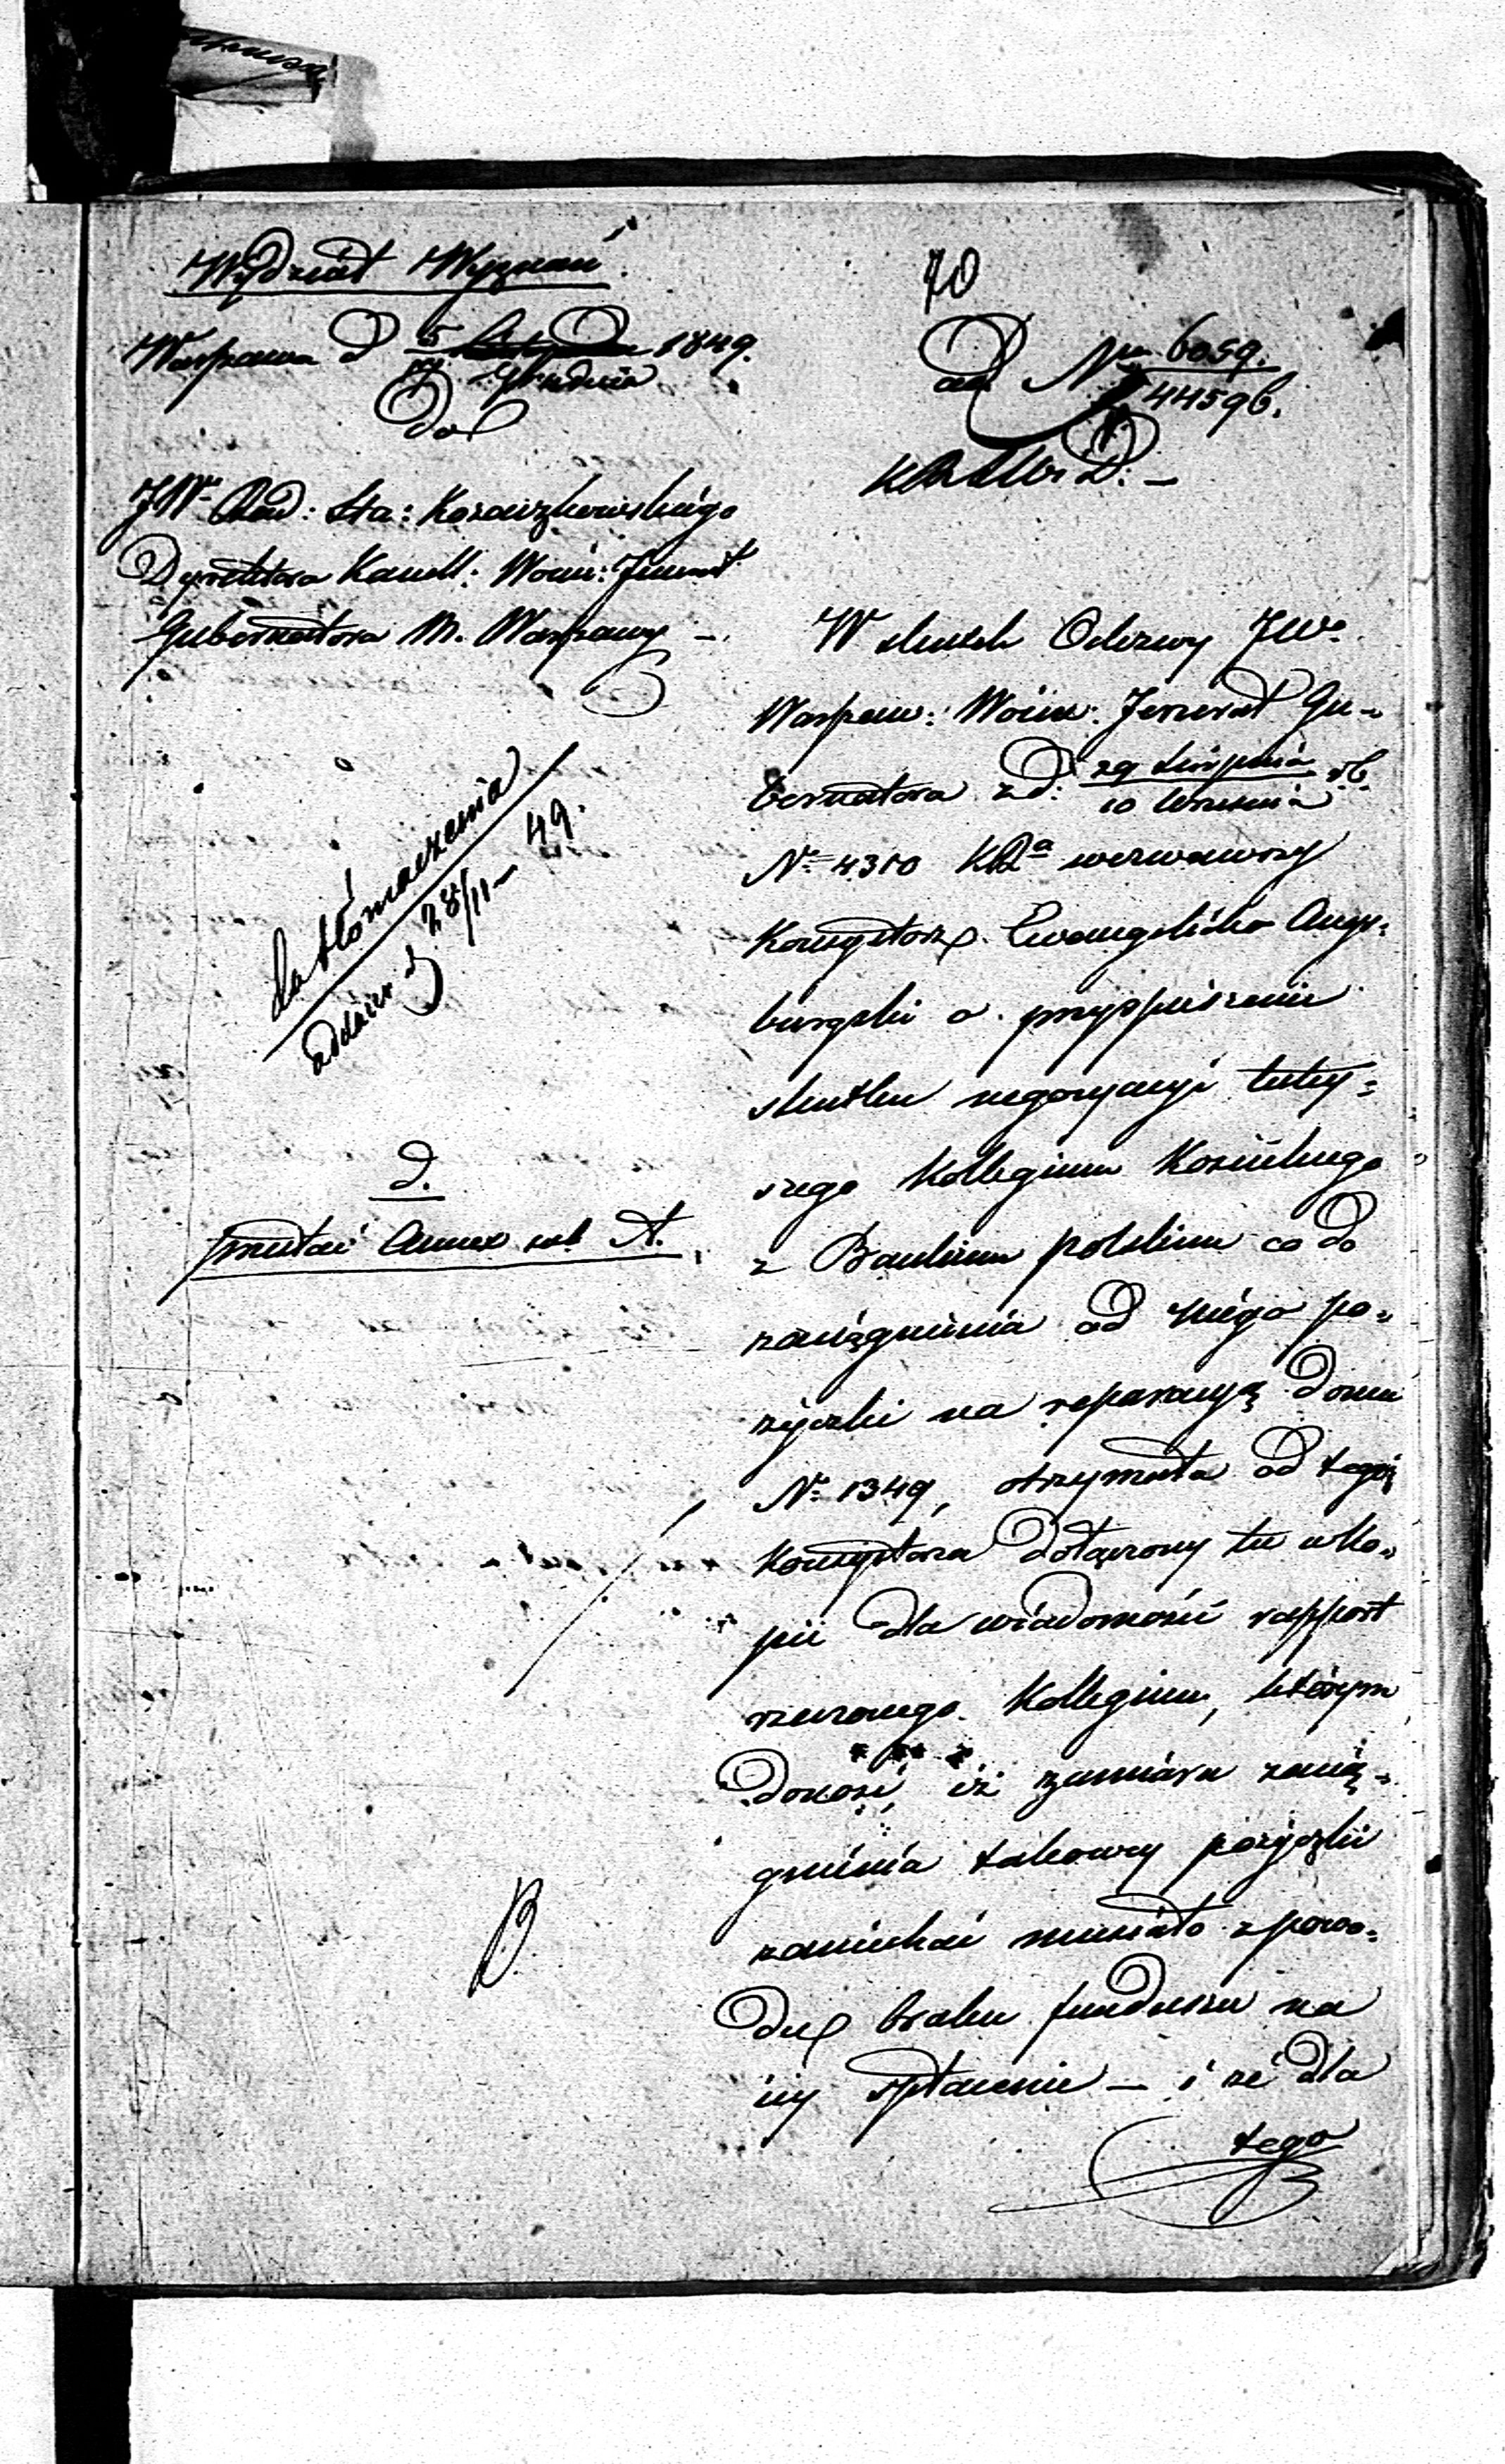 Wydział Wyznań
Warszawa d 5/17 Listopada Grudnia 1849.
Do
JW. Rad: Sta: Koraiszkowskiégo
Dyrektora Kancll: Woien: Jenerał
Gubernatora M. Warszawy
do tłómaczenia
oddano d 28/11 – 49.
d.
Annex sub A.
70
ad Nru 6059.
44596.
W skutek Odezwy JWo
Warszaw: Woien: Jenerał Gu-
bernatora z d: 29 Sierpnia / 10 Września r.b.
No 4310 wezwawszy
Konsystorz Ewangelicko Augs-
burgski o przyspieszenie
skutku negocyacyi tutey-
szego Kollegium Kościelnego
z Bankiem polskim co do
zaciągnienia od niégo po-
życzki na reparacyą domu
No 1349, otrzymała od tegoż
Konsystorza dołączony tu w ko-
pii dla wiadomości rapport
rzeczonego Kollegium, którym
donosi, iż zamiaru zacią-
gnienia takowey pożyczki
zaniechać musiało z powo-
du braku funduszu na
iey spłacenie – i że dla
tego